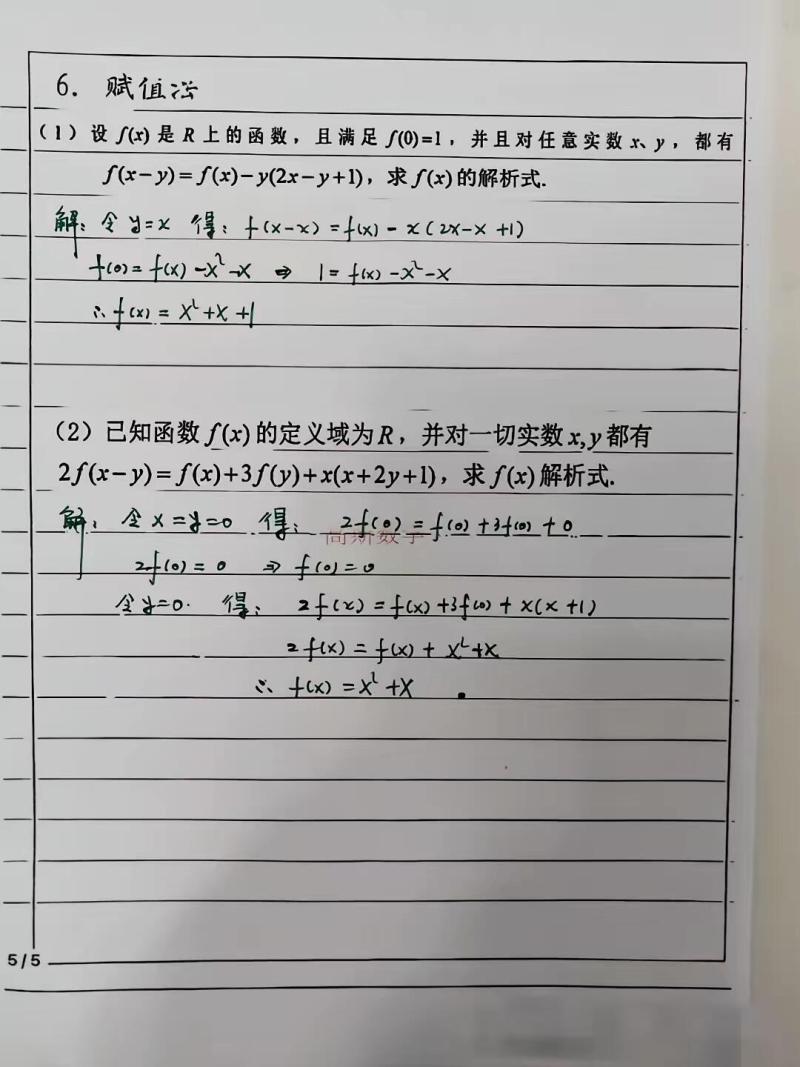 6. 赋值法
（1）设 f(x) 是 R 上的函数，且满足 f(0)=1，并且对任意实数 x、y，都有
f(x-y)=f(x)-y(2x-y+1)，求 f(x) 的解析式.
解：令 y=x 得：f(x-x)=f(x)-x(2x-x+1)
f(0)=f(x)-x²-x ⇒ 1=f(x)-x²-x
∴ f(x)=x²+x+1
（2）已知函数 f(x) 的定义域为 R，并对一切实数 x,y 都有
2f(x-y)=f(x)+3f(y)+x(x+2y+1)，求 f(x) 解析式.
解：令 x=y=0 得：2f(0)=f(0)+3f(0)+0
尚斯数学
2f(0)=0 ⇒ f(0)=0
令 y=0. 得：2f(x)=f(x)+3f(0)+x(x+1)
2f(x)=f(x)+x²+x
∴ f(x)=x²+x.
5/5